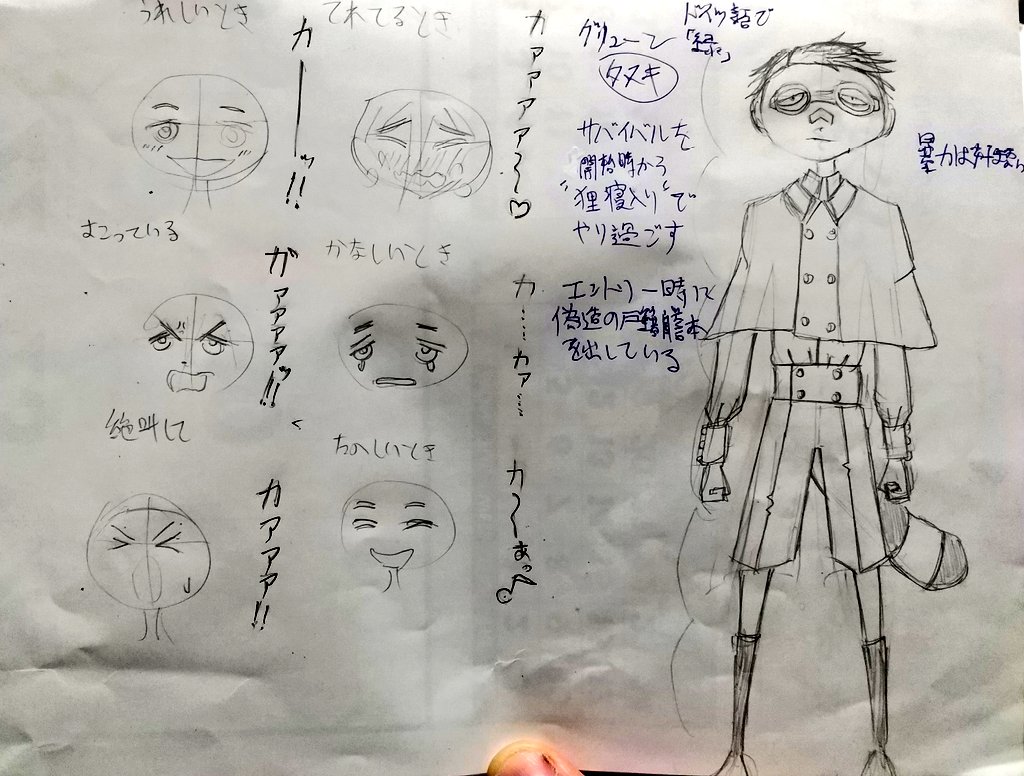 うれしいとき
カーーッ!!
てれてるとき
カァァァァ～～♡
おこっている
ガァァァァッ!!
かなしいとき
カ……カァ……
絶叫して
カァァァァ!!
たのしいとき
カ～～あっ♪
グリューン
ドイツ語で
「緑」
タヌキ
サバイバルを
開始時から
"狸寝入り"で
やり過ごす
エントリー時に
偽造の戸籍謄本
を出している
暴力は